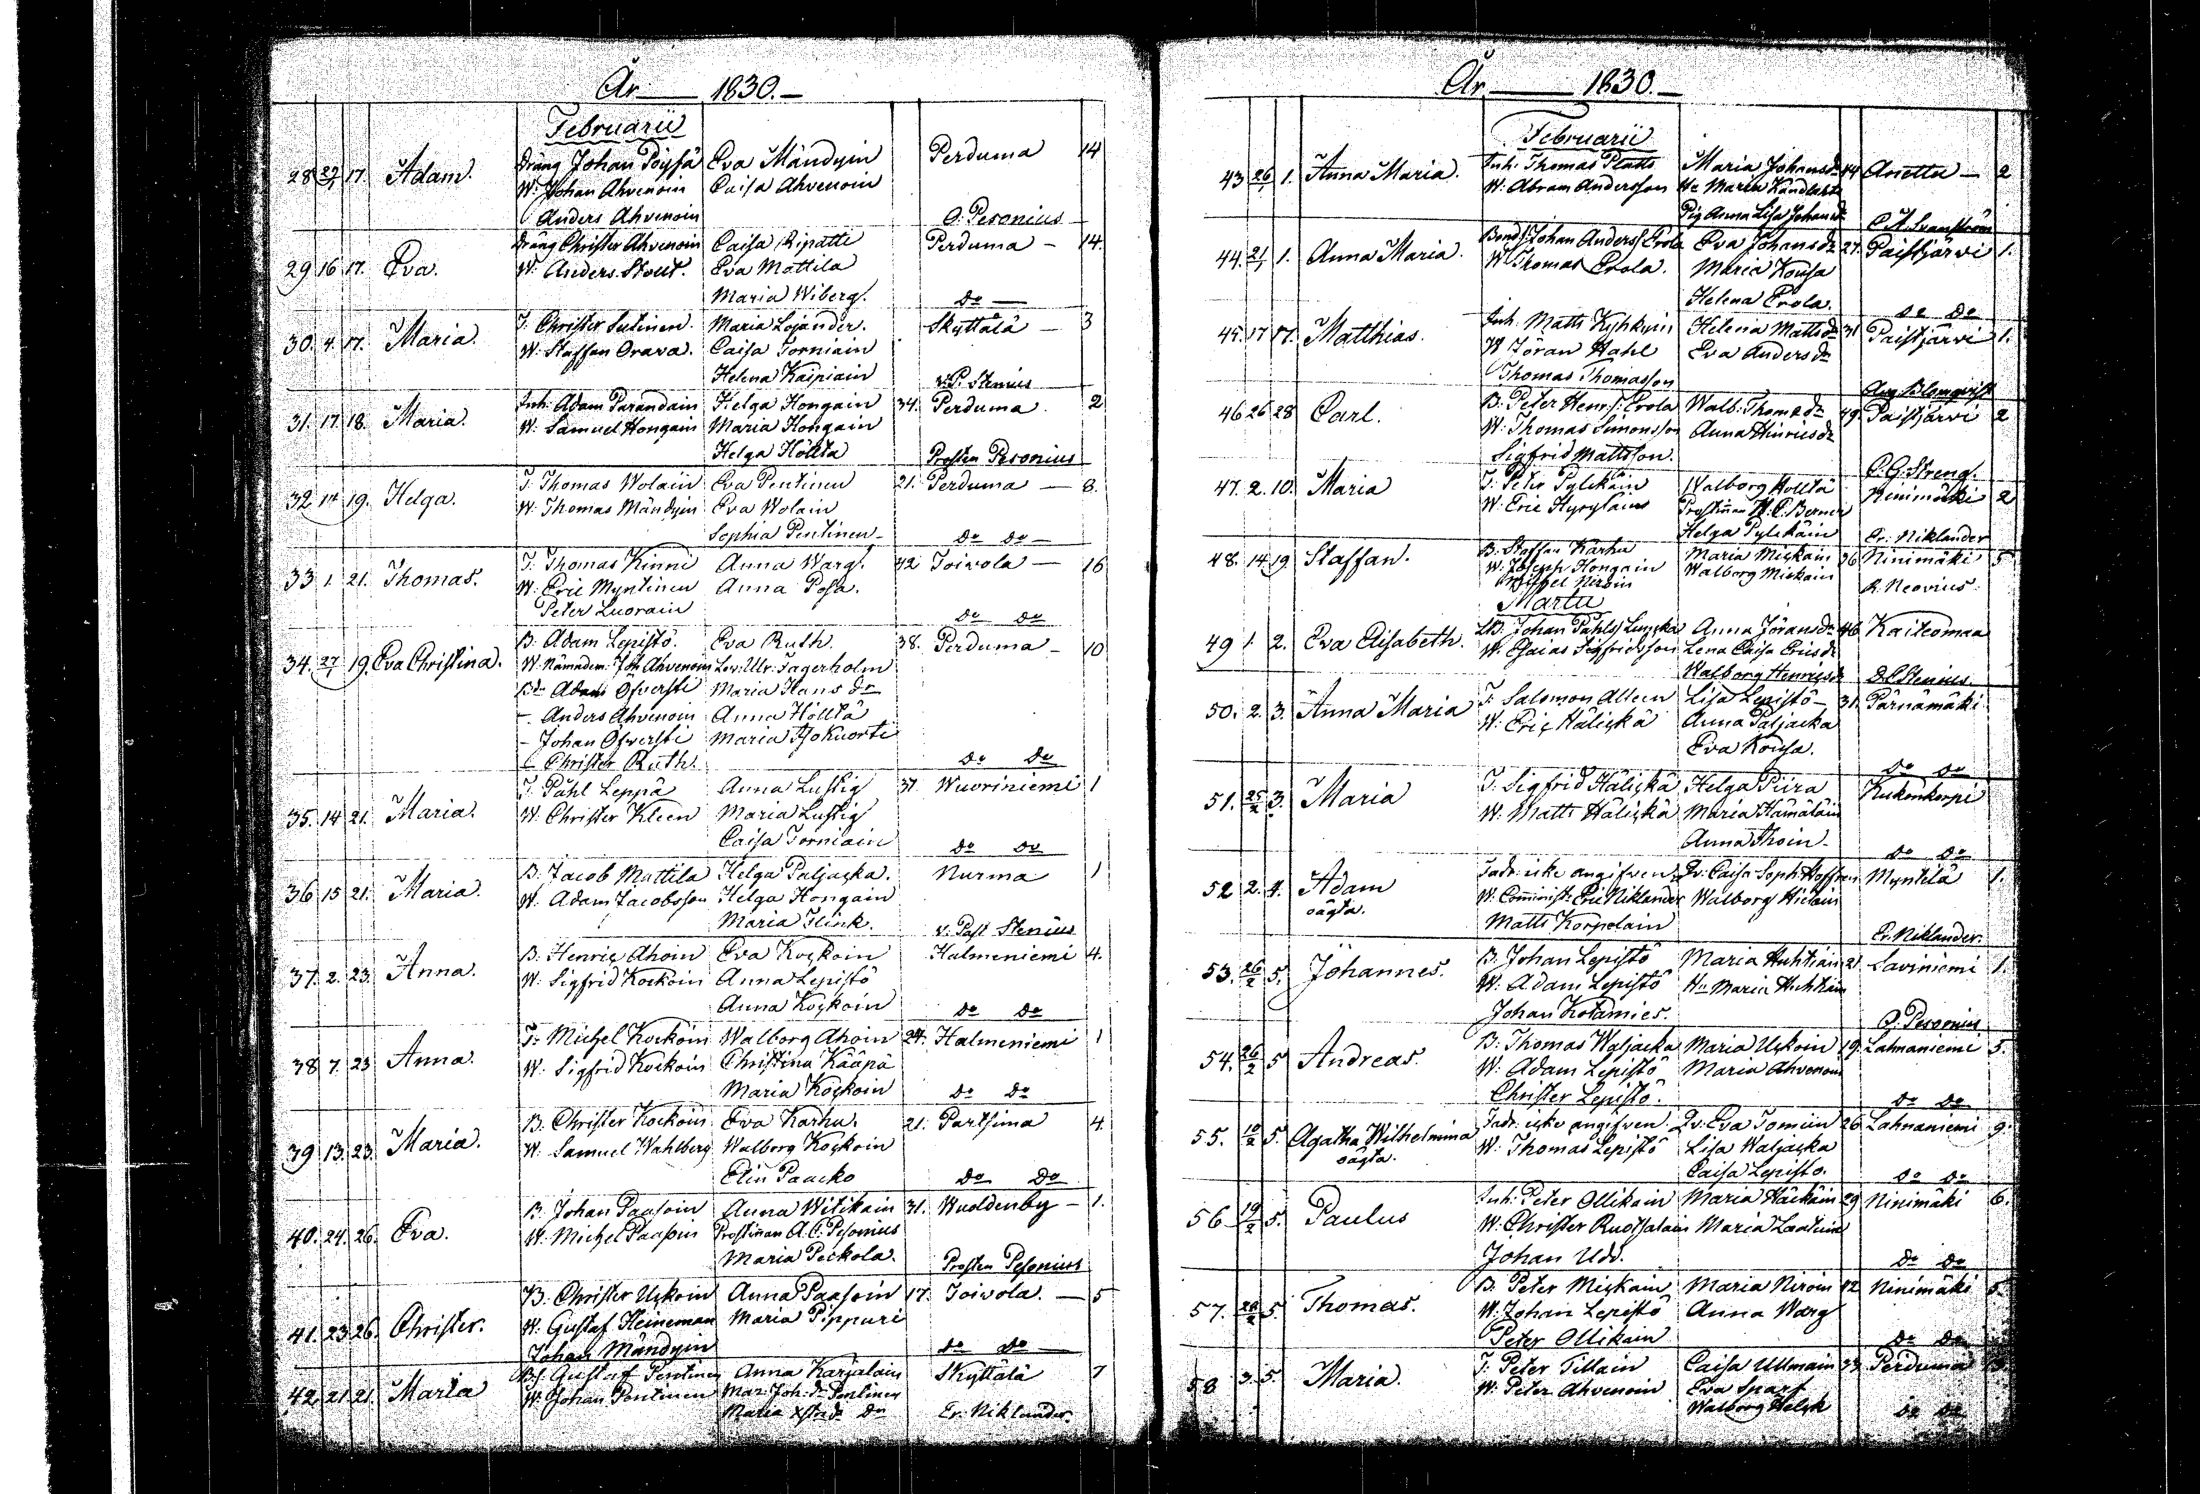 År 1830.
Februarii
28 27/1 17. Adam. Dräng Johan Pöysä Eva Mändyin Perduma 14
W. Johan Ahvenoin Caisa Ahvenoin
Anders Ahvenoin O. Pesonius
29 16 17. Eva. Dräng Christer Ahvenoin Caisa Ripatti Perduma 14.
W. Anders Stout. Eva Mattila
Maria Wiberg. do
30. 4. 17. Maria. T. Christer Sutinen. Maria Lojander. Skyttälä 3
W. Staffan Orava. Caisa Torniain
Helena Kaipiain v. P. Stenius
31. 17. 18. Maria. Inh. Adam Parandain Helga Hongain 34. Perduma. 2
W. Samuel Hongain Maria Hongain
Helga Höltta Prosten Pesonius
32 14 19. Helga. T. Thomas Wolain Eva Pentinen 21. Perduma 8.
W. Thomas Mändyin Eva Wolain
Sophia Pentinen do do
33 1 21. Thomas. T. Thomas Kinni Anna Warg. 42 Toivola 16
W. Eric Myntinen Anna Posa.
Peter Luorain do do
34. 27/1 19. Eva Christina. B. Adam Lepistö. Eva Ruth. 38. Perduma 10
W. Nämndem. Joh. Ahvenoin Lov. Ulr. Jagerholm
Bd. Adam Öfversti Maria Hans dr
- Anders Ahvenoin Anna Hölttä
- Johan Öfversti Maria
- Christer Ruth. do do
35. 14 21. Maria. T. Påhl Leppä Anna Lustig 37 Wuoriniemi 1
W. Christer Kleen Maria Lustig
Caisa Torniain do do
36 15 21. Maria. B. Jacob Mattila Helga Paljacka. Nurma 1
W. Adam Jacobsson Helga Hongain
Maria Flink. v. Past Stenius
37. 2. 23. Anna. B. Henric Ahoin Eva Kockoin Halmeniemi 4.
W. Sigfrid Kockoin Anna Lepistö
Anna Kockoin do do
38 7. 23 Anna. T. Michel Kockoin Walborg Ahoin 24. Halmeniemi 1
W. Sigfrid Kockoin Christina Kääpä
Maria Kockoin do do
39 13. 23. Maria. B. Christer Kockoin Eva Karhu. 21. Partsima 4.
W. Samuel Wahlberg Walborg Kockoin
Elin Paacko do do
40. 24. 26. Eva. B. Johan Paasoin Anna Witikain 31. Wuoldenby 1.
W. Michel Paasoin Prostinnan A. C. Pesonius
Maria Peckola. Prosten Pesonius
41. 23 26. Christer. B. Christer Uckoin Anna Paasoin 17. Toivola. 5
W. Gustaf Heineman Maria Pippuri
Johan Mändyin do do
42. 21 21. Maria Gustaf Pentinen Anna Karjalain Skyttälä 7
W. Johan Pentinen Mar. Joh. dr Pentinen
Maria Er. Niklander.
År 1830.
Februarii
43 26/1 1. Anna Maria. Inh. Thomas Platts Maria Johansdr 44 Anetta 2
W. Abram Andersson Hu Maria Kandlahti
Pig Anna Lisa Johansdr C. A. Svanström
44. 21/1 1. Anna Maria. Bonds. Johan Anderss. Erola Eva Johansdr 27. Paistjärvi 1.
W. Thomas Erola. Maria Kousa
Helena Erola. do do
45. 17 17. Matthias. Inh. Matts Kyhkyin Helena Mattsdr 31 Paistjärvi 1.
W Jöran Hahl Eva Andersdr
Thomas Thomasson Aug. Blomqvist
46 26 28 Carl. B. Peter Henrs. Erola Walb: Thomedr 49. Paistjärvi 2
W. Thomas Simonsson Anna Hinricsdr
Sigfrid Mattsson. C. G. Streng.
47. 2. 10. Maria T. Peter Pylckäin Walborg Holltä Ninimäki 2
W. Eric Hyryläin Prostinnan Berner
Helga Pylckäin Er. Niklander
48. 14 19 Staffan. B. Staffan Karhu Maria Mickain 36 Ninimäki 5
W. Joseph Hongain Walborg Mickain
Michel Niroin R. Neovius.
Martii
49 1. 2. Eva Elisabeth. Johan Påhls. Anna Jöransdr 46 Kaitcomaa
W. Esaias Sigfridsson Lena Caisa Ericsdr
Walborg Henricsdr Stenius.
50. 2. 3. Anna Maria T. Salomon Alleen Lisa Lepistö 31 Pärnämäki
W. Eric Hälickä Anna Paljacka
Eva Kousa. do do
51. 25/2 3. Maria T. Sigfrid Hälickä Helga Piira Kukonkorpi
W. Matts Hälickä Maria Hämäläin
Anna Ihoin do do
52 2. 4. Adam Fadr. icke angifven Qv. Caisa Soph. Hoffren Myntilä 1.
oägta. W. Eric Niklander Walborg Hietain
Matts Korpelain Er. Niklander.
53. 26/2 5. Johannes. B. Johan Lepistö Maria Huhtiain 21 Saviniemi 1.
W. Adam Lepistö Hu Maria Huhtiain
Johan Kotamies. O. Pesonius
54. 26/2 5 Andreas. B. Thomas Waljacka Maria Uckoin 19. Lahnaniemi 5.
W. Adam Lepistö Maria Ahvenoin
Christer Lepistö. do do
55. 10/2 5. Agatha Wilhelmina Fadr. icke angifven Qv. Eva Tomiin 26 Lahnaniemi 9.
oägta. W. Thomas Lepistö Lisa Waljacka
Caisa Lepistö. do do
56 19/2 5. Paulus Inh. Peter Ollikain Maria Häckäin 29 Ninimäki 6.
W. Christer Ruotsalain Maria Laatuin
Johan Udd. do do
57. 28/2 5. Thomas. B. Peter Mickain Maria Niroin 42 Ninimäki 5
W. Johan Lepistö Anna Warg
Peter Ollikain do do
58 3. 5. Maria. T. Peter Tillain Caisa Ullmain 33 Perduma
W. Peter Ahvenoin Eva Sparf
Walborg Helck do do